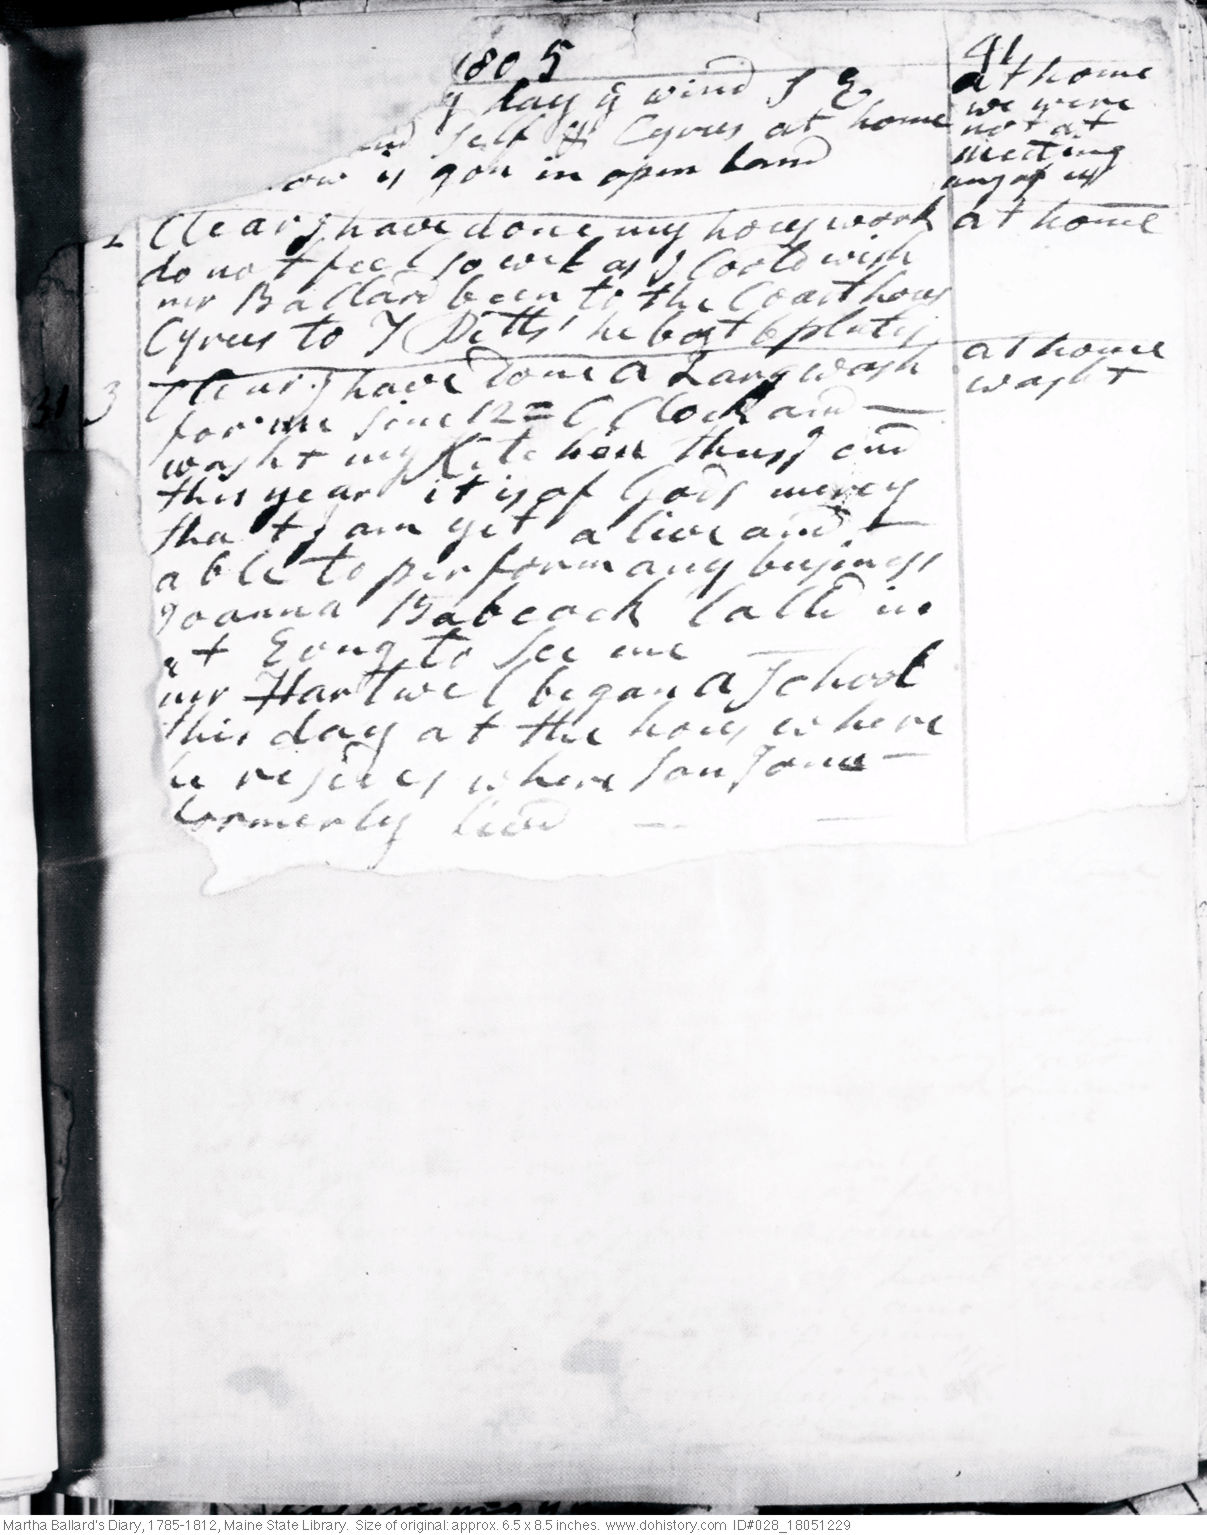 1805
41
g day & wind S E
at home
we were
and self & Cyrus at home
not at
meeting
is gon in open Land
2 Clear I have done my hous work
at home
do not feel so wel as I Coold wish
mr Ballard been to the Coarthous
Cyrus to Pitts' he bot 6 plates
at home
31 3 Clear I have done a Larg wash
washt
for me sinc 12 = C Clock and
washt my Kitchen thus I end
this year it is of Gods mercy
that I am yet alive and
able to perform any business
Joanna Babcock calld in
at Evng to see me
mr Hartwel began a School
this day at the hous where
he resides where son Jona
formerly livd
Martha Ballard's Diary, 1785-1812, Maine State Library. Size of original: approx. 6.5 x 8.5 inches. www.dohistory.com ID#028_18051229